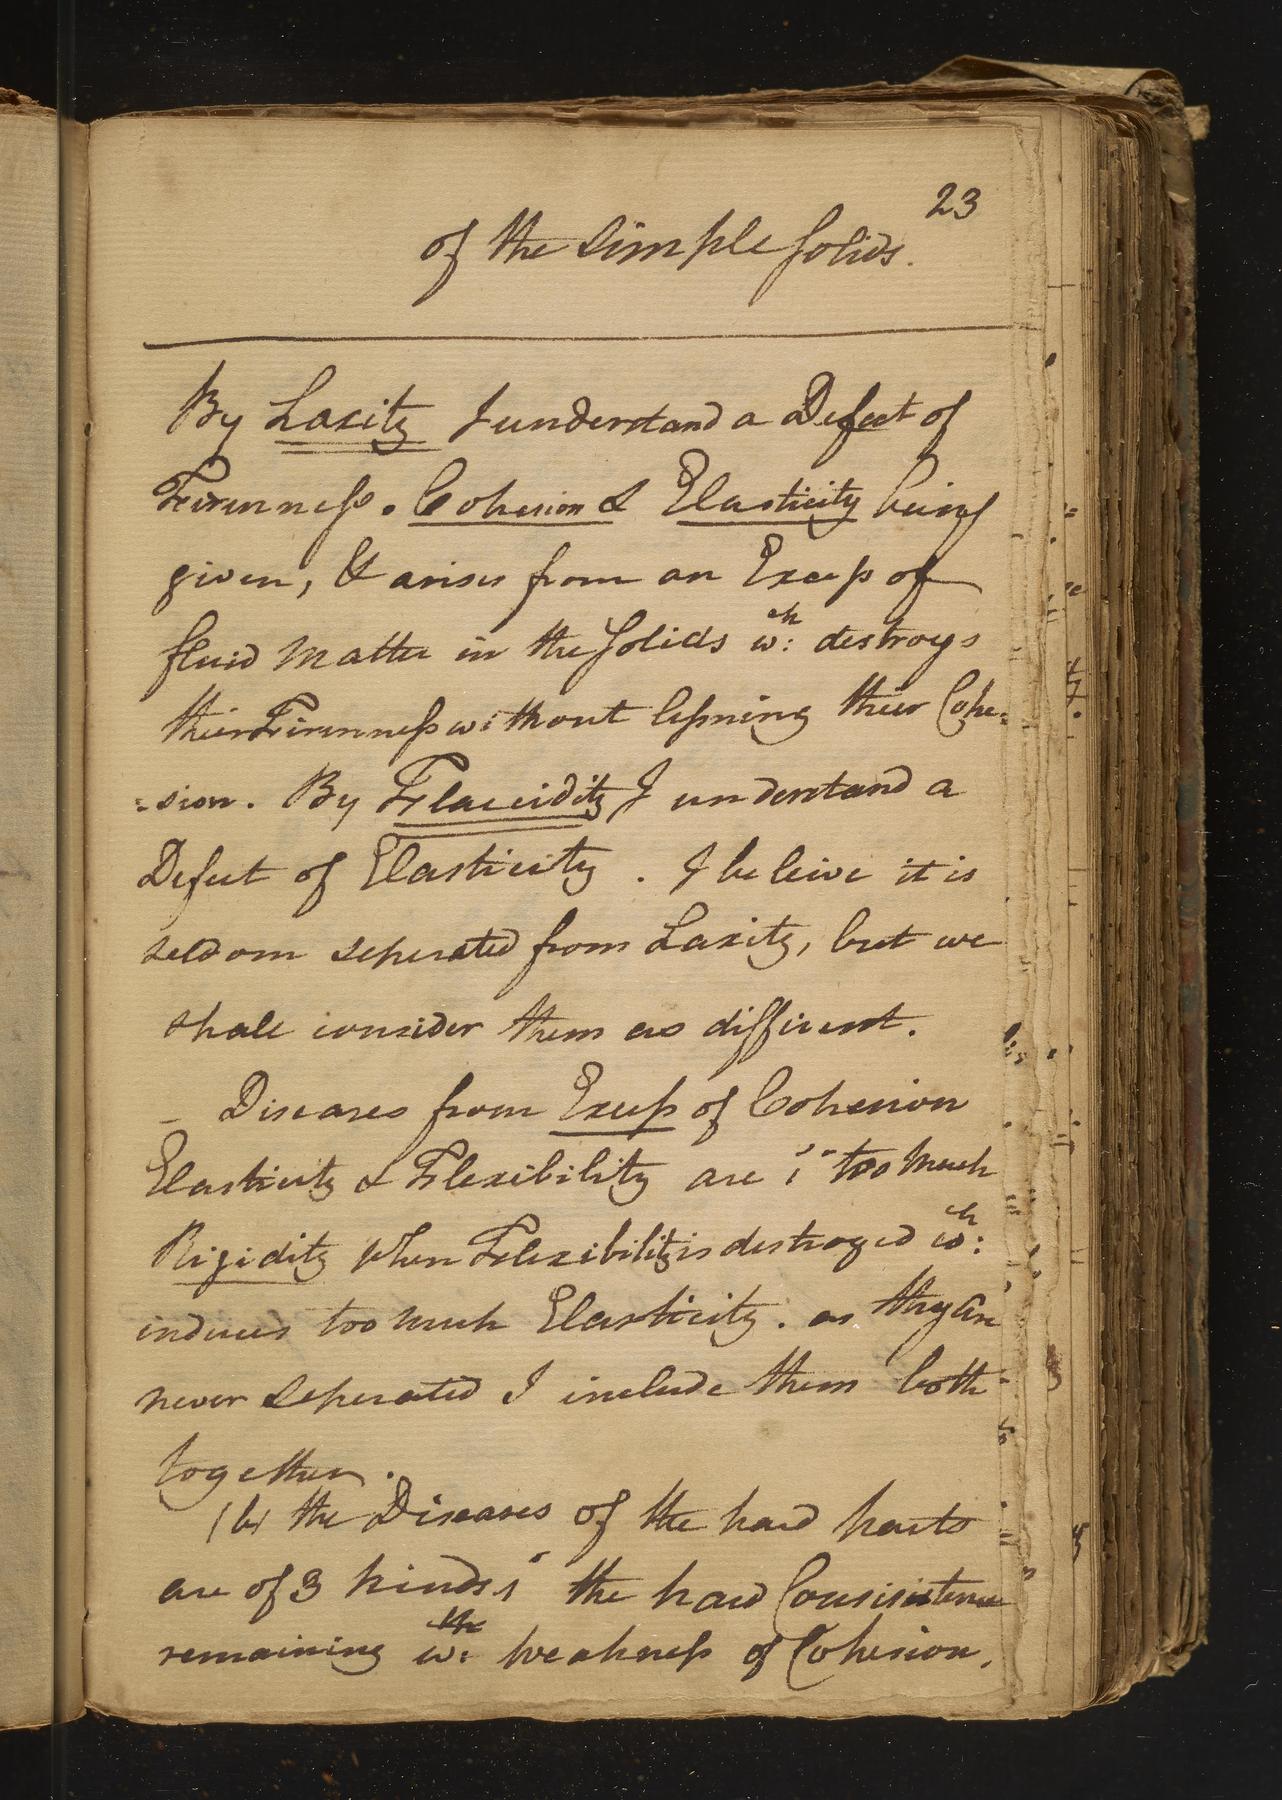 23
of the simple solids.
By Laxity I understand a Defect of
Firmness. Cohesion & Elasticity being
given, & arises from an Excess of
fluid Matter in the Solids wch: destroys
their Firmness without lessning their Cohe=
=sion. By Flaccidity I understand a
Defect of Elasticity. I beleive it is
seldom seperated from Laxity, but we
shall consider them as different.
_ Diseases from Excess of Cohesion
Elasticity & Flexibility are 1st too Much
Rigidity when Flexibility is destroyed wch:
induces too much Elasticity. as they are
never seperated I include them both
together.
(b) the Diseases of the hard parts
are of 3 kinds 1st the hard Consistence
remaining wth: Weakness of Cohesion.